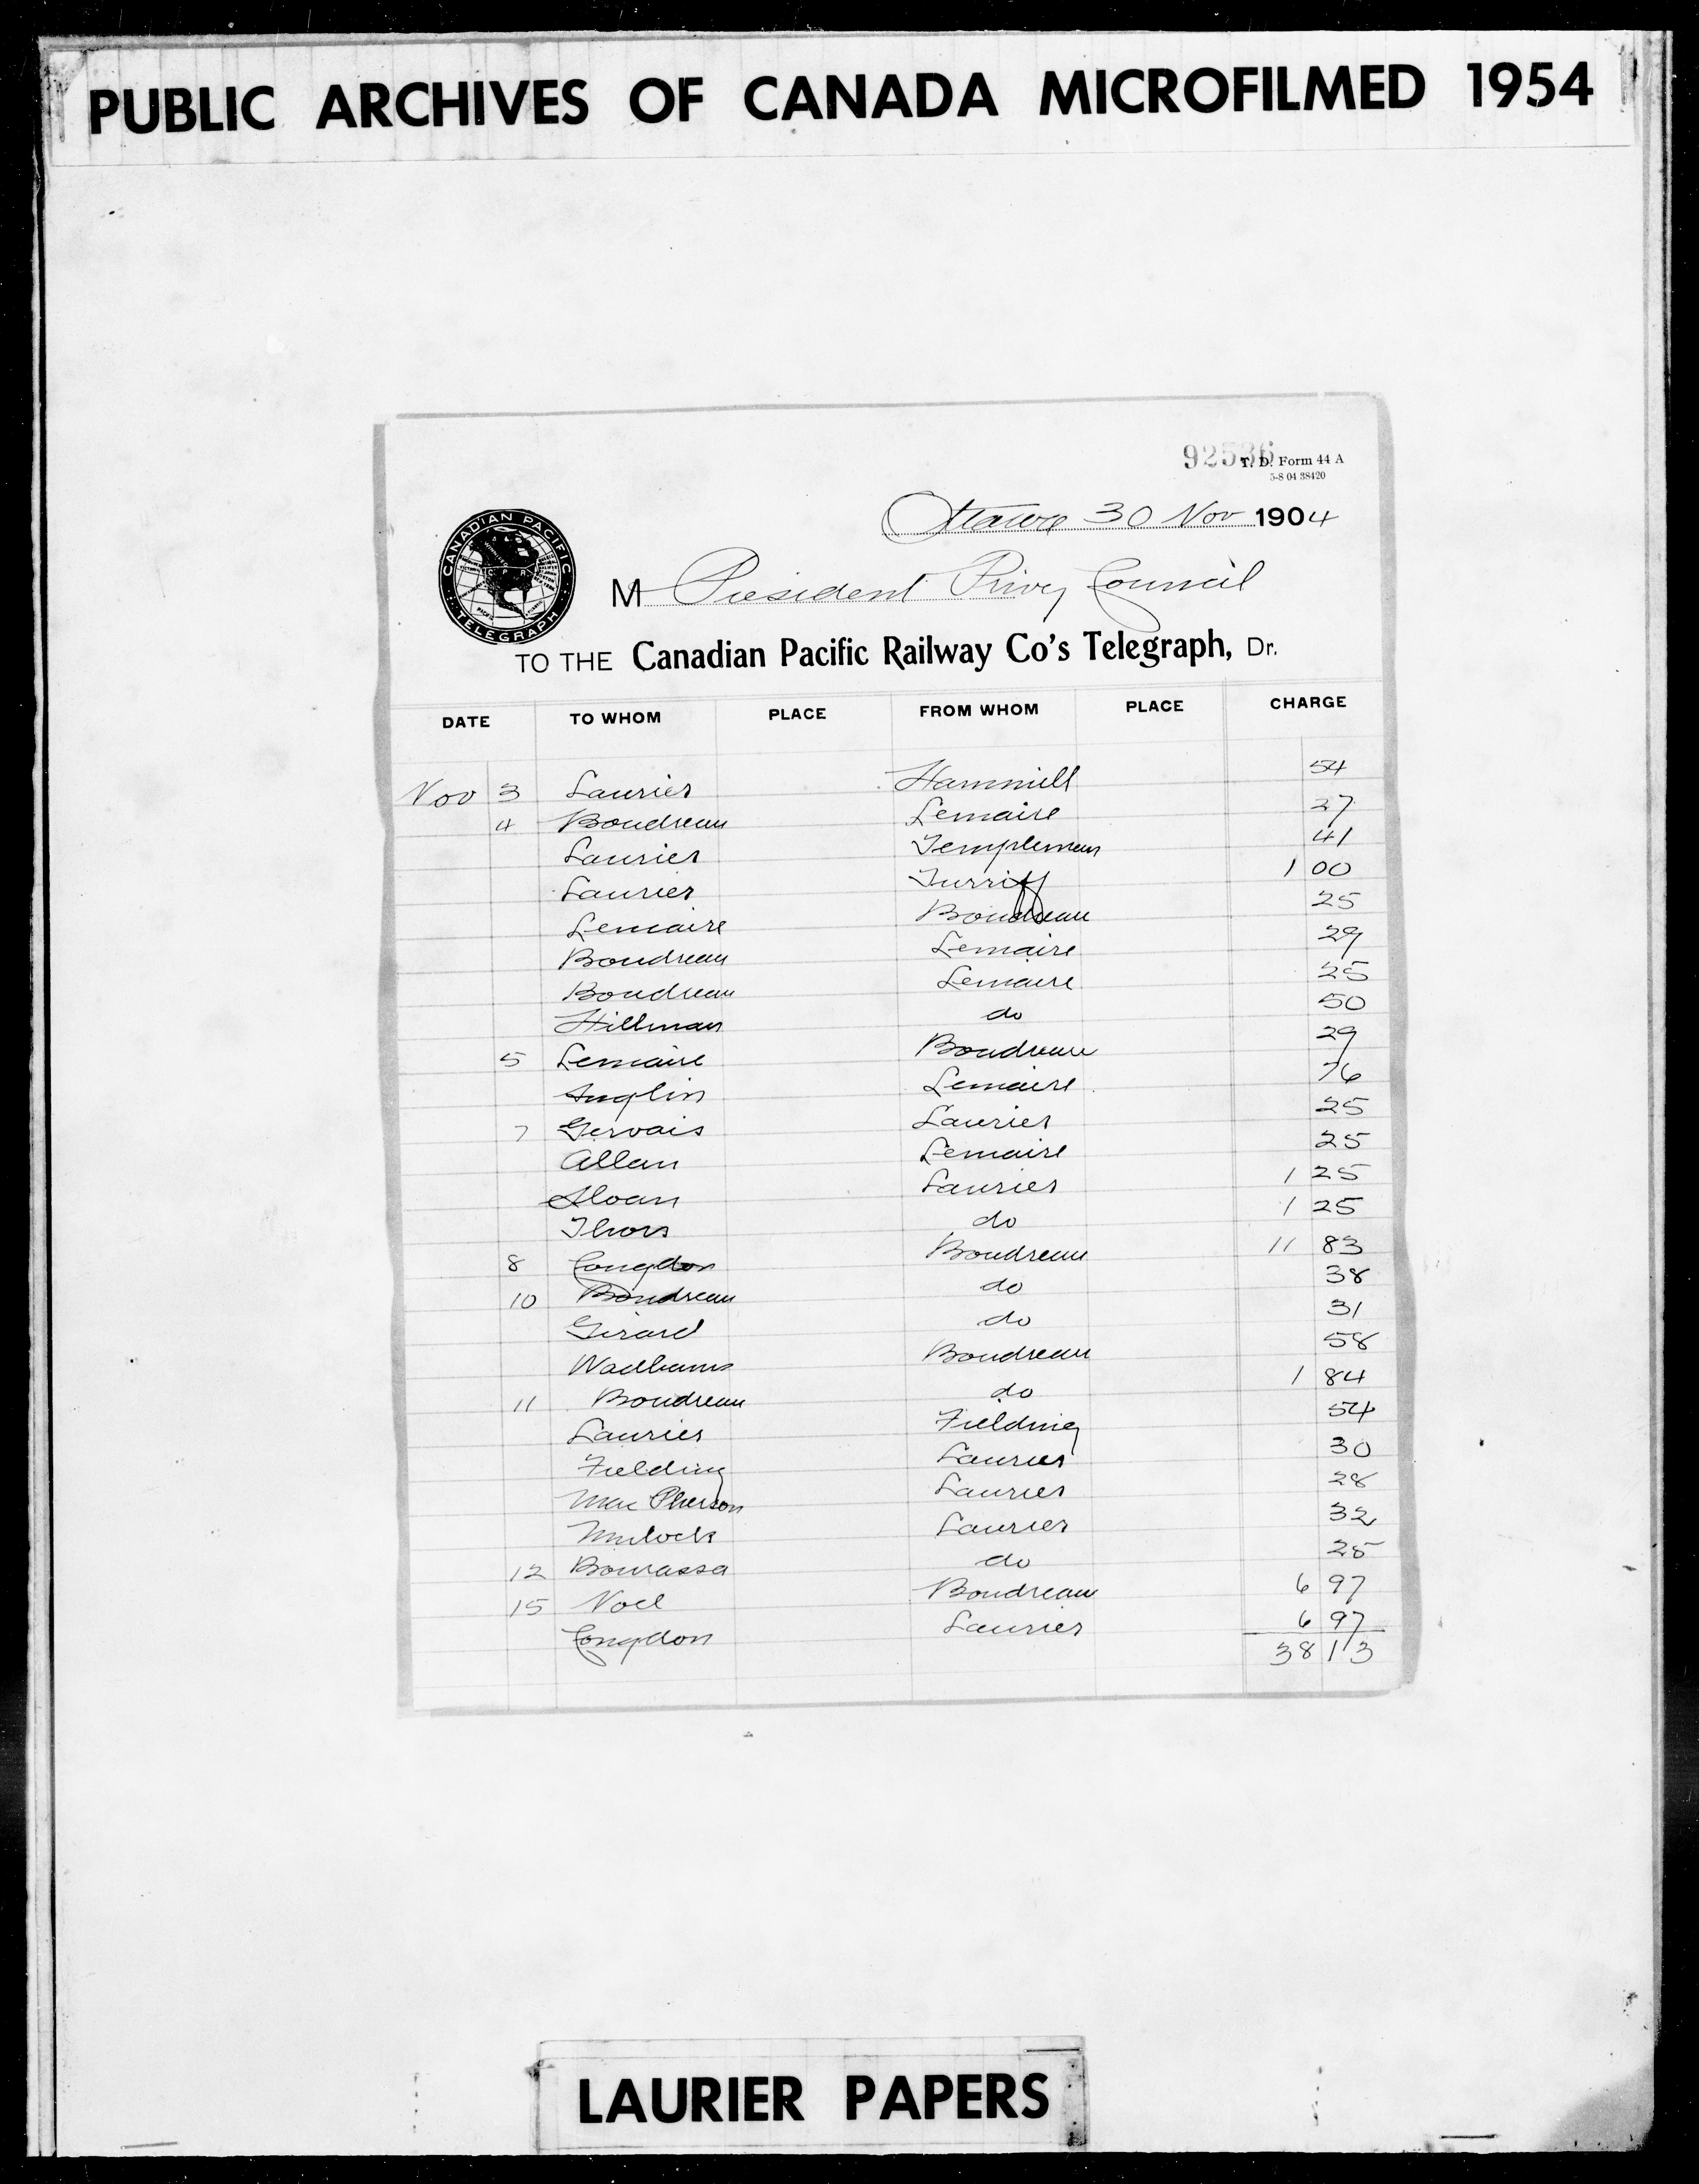 PUBLIC ARCHIVES OF CANADA MICROFILMED 1954
92536 T. D. Form 44 A
5-8 04 38420
Ottawa 30 Nov 1904
CANADIAN PACIFIC TELEGRAPH
M President Privy Council
TO THE Canadian Pacific Railway Co's Telegraph, Dr.
DATE TO WHOM PLACE FROM WHOM PLACE CHARGE
Nov 3 Laurier Hammill 54
4 Boudreau Lemaire 27
Laurier Templeman 41
Laurier Turriff 1 00
Lemaire Boudreau 25
Boudreau Lemaire 29
Boudreau Lemaire 25
Hillman do 50
5 Lemaire Boudreau 29
Anglin Lemaire 76
7 Gervais Laurier 25
Allan Lemaire 25
Sloan Laurier 1 25
Thors do 1 25
8 Congdon Boudreau 11 83
10 Boudreau do 38
Girard do 31
Wadhams Boudreau 58
11 Boudreau do 1 84
Laurier Fielding 54
Fielding Laurier 30
MacPherson Laurier 28
Mulock Laurier 32
12 Bourassa do 25
15 Noel Boudreau 6 97
Congdon Laurier 6 97
38 13
LAURIER PAPERS